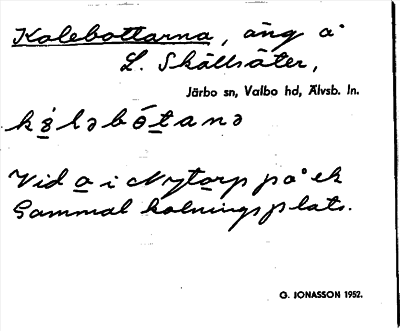 Kolebottarna, äng å
L. Skällsäter,
Järbo sn, Valbo hd, Älvsb. ln.
Vid a i Nytorp på ek
Gammal kolningsplats.
G. JONASSON 1952.